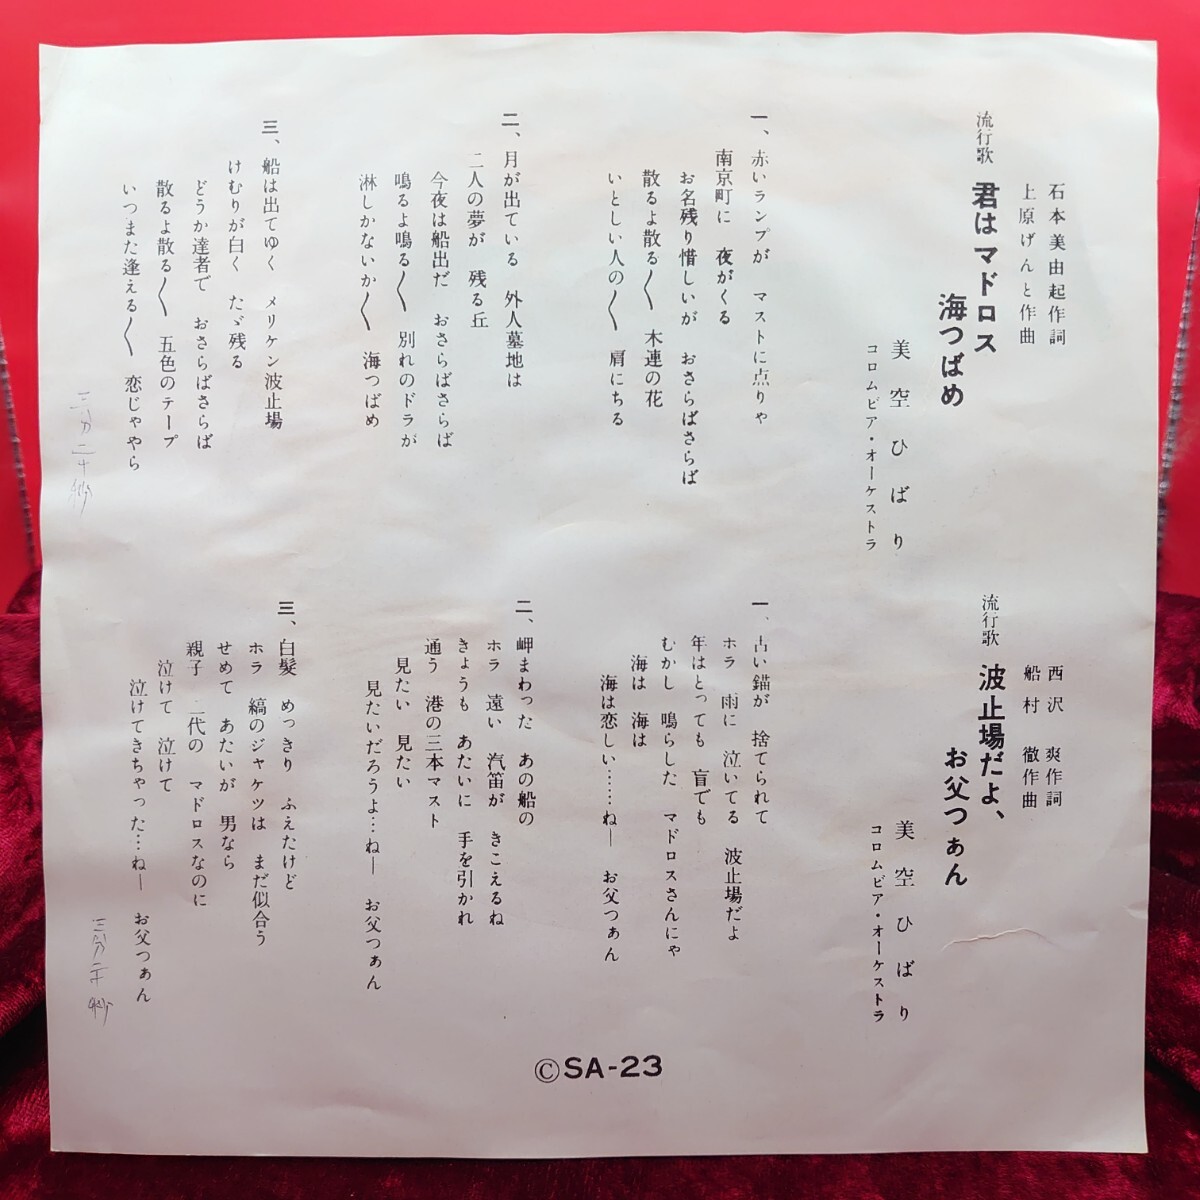 石本美由起作詞
上原げんと作曲
流行歌 君はマドロス
海つばめ
美空ひばり
コロムビア・オーケストラ
一、赤いランプが マストに点りゃ
南京町に 夜がくる
お名残り惜しいが おさらばさらば
散るよ散る〱 木連の花
いとしい人の〱 肩にちる
二、月が出ている 外人墓地は
二人の夢が 残る丘
今夜は船出だ おさらばさらば
鳴るよ鳴る〱 別れのドラが
淋しかないか〱 海つばめ
三、船は出てゆく メリケン波止場
けむりが白く たゞ残る
どうか達者で おさらばさらば
散るよ散る〱 五色のテープ
いつまた逢える〱 恋じゃやら
三分二十秒
西沢 爽作詞
船村 徹作曲
流行歌 波止場だよ、
お父つぁん
美空ひばり
コロムビア・オーケストラ
一、古い錨が 捨てられて
ホラ 雨に 泣いてる 波止場だよ
年はとっても 盲でも
むかし 鳴らした マドロスさんにゃ
海は 海は
海は恋しい……ねー お父つぁん
二、岬まわった あの船の
ホラ 遠い 汽笛が きこえるね
きょうも あたいに 手を引かれ
通う 港の三本マスト
見たい 見たい
見たいだろうよ…ねー お父つぁん
三、白髪 めっきり ふえたけど
ホラ 縞のジャケツは まだ似合う
せめて あたいが 男なら
親子 二代の マドロスなのに
泣けて 泣けて
泣けてきちゃった…ねー お父つぁん
三分二十秒
ⒸSA-23